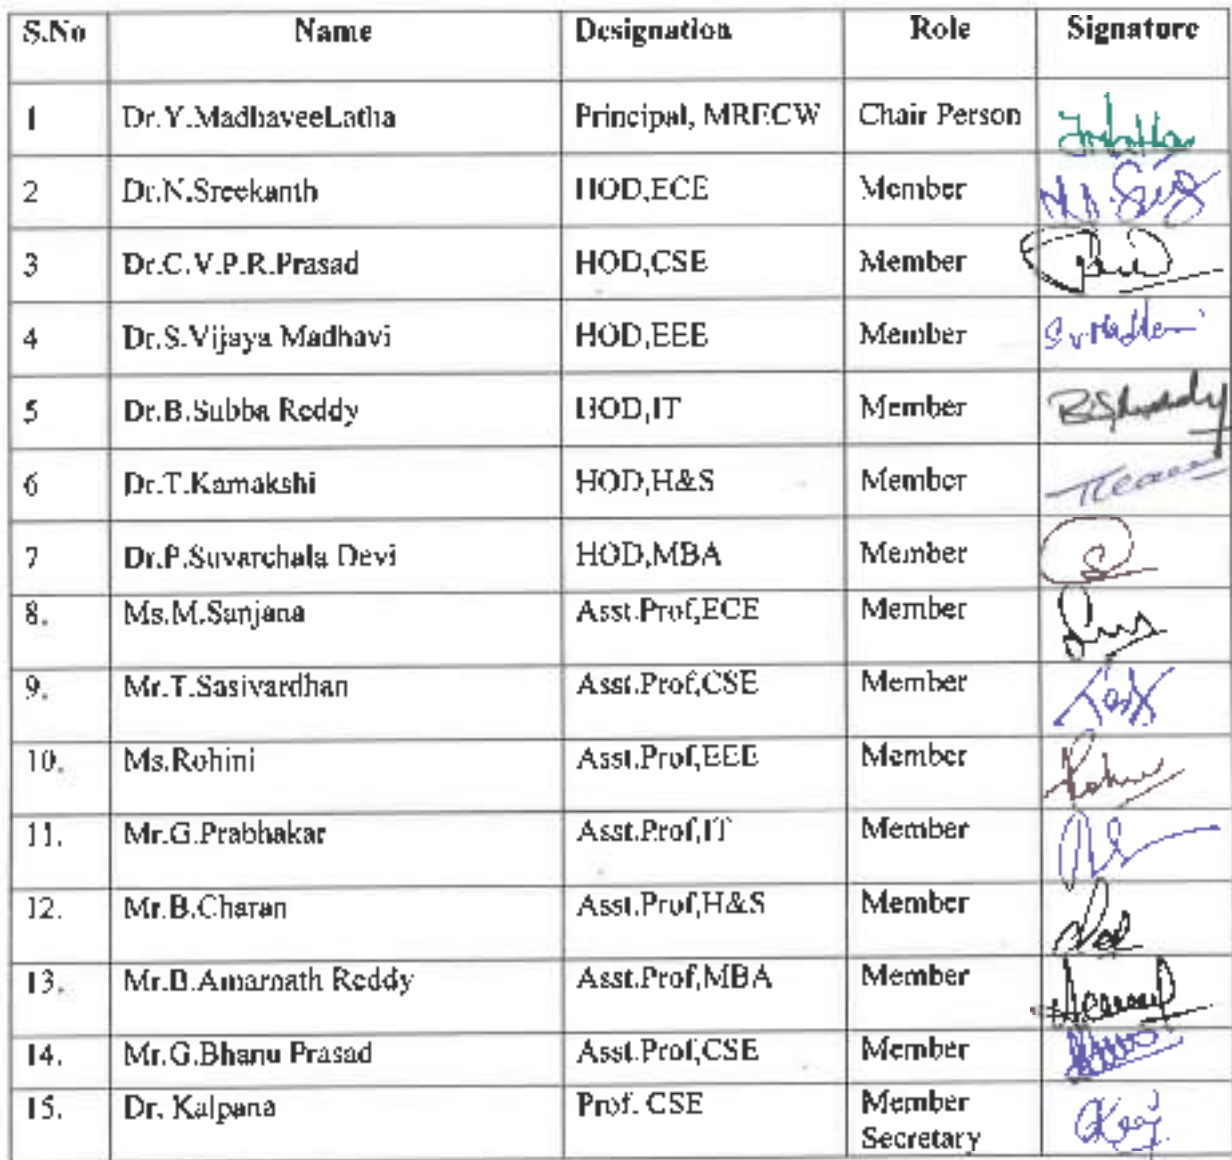 S.No Name Designation Role Signature
1 Dr.Y.MadhaveeLatha Principal, MRECW Chair Person
2 Dr.N.Sreekanth HOD,ECE Member
3 Dr.C.V.P.R.Prasad HOD,CSE Member
4 Dr.S.Vijaya Madhavi HOD,EEE Member
5 Dr.B.Subba Reddy HOD,IT Member
6 Dr.T.Kamakshi HOD,H&S Member
7 Dr.P.Suvarchala Devi HOD,MBA Member
8. Ms.M.Sanjana Asst.Prof,ECE Member
9. Mr.T.Sasivardhan Asst.Prof,CSE Member
10. Ms.Rohini Asst.Prof,EEE Member
11. Mr.G.Prabhakar Asst.Prof,IT Member
12. Mr.B.Charan Asst.Prof,H&S Member
13. Mr.B.Amarnath Reddy Asst.Prof,MBA Member
14. Mr.G.Bhanu Prasad Asst.Prof,CSE Member
15. Dr. Kalpana Prof. CSE Member
Secretary